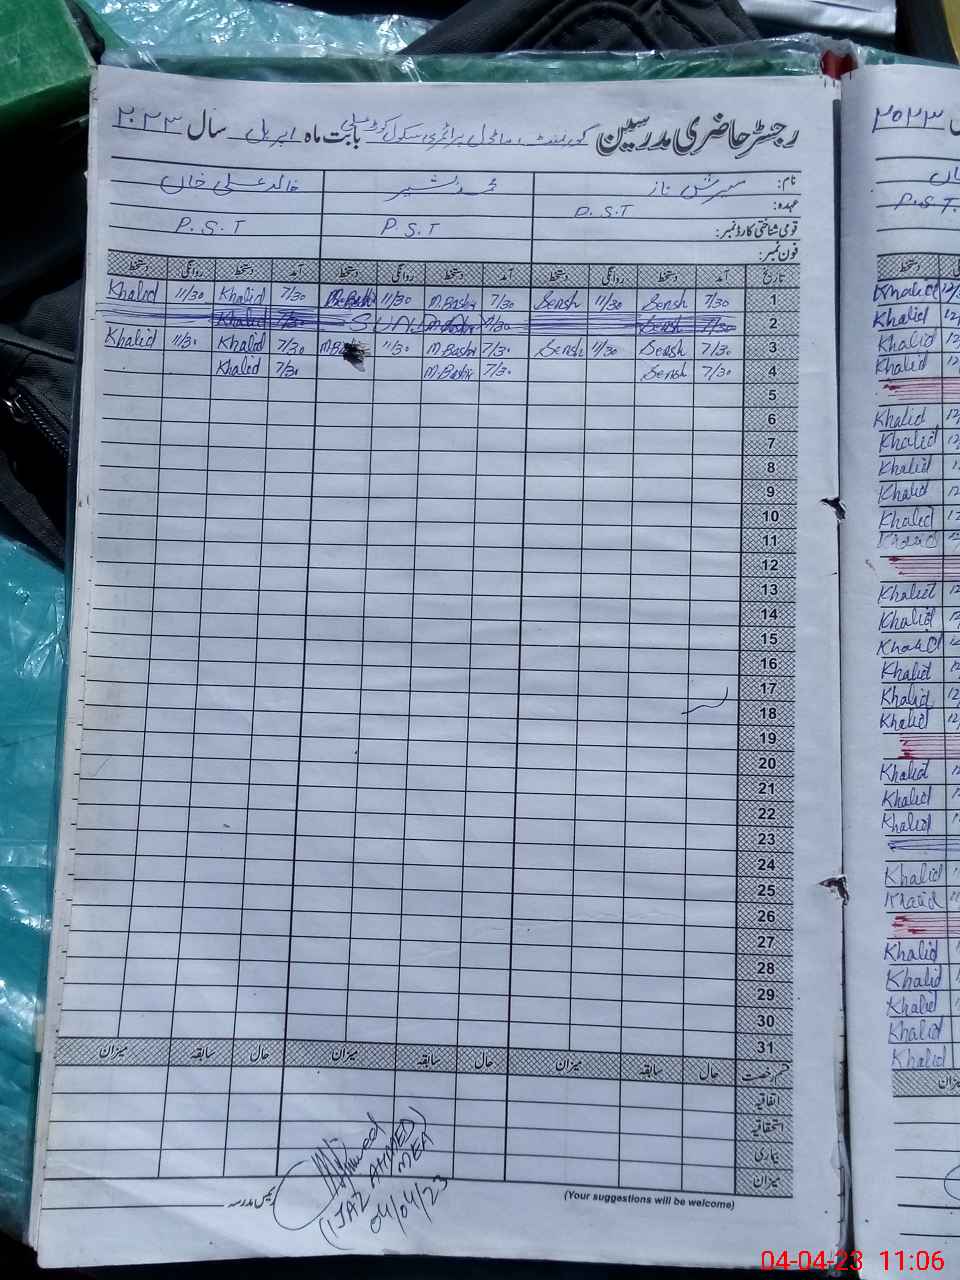 رجسٹر حاضری مدرسین گورنمنٹ ماڈل پرائمری سکول بابت ماہ اپریل سال ۲۰۲۳
نام: سیرش ناز محمد بشیر خالد علی خان
عہدہ: P.S.T P.S.T P.S.T
قومی شناختی کارڈ نمبر:
فون نمبر:
تاریخ آمد دستخط روانگی دستخط آمد دستخط روانگی دستخط آمد دستخط روانگی دستخط
Khalid 11/30 Khalid 7/30 M.Bashir 11/30 M.Bashir 7/30 Sersh 11/30 Sersh 7/30 1
Khalid 7/30 SUNDAY Sersh 7/30 2
Khalid 11/30 Khalid 7/30 11/30 M.Bashir 7/30 Sersh 11/30 Sersh 7/30 3
Khalid 7/30 M.Bashir 7/30 Sersh 7/30 4
5
6
7
8
9
10
11
12
13
14
15
16
17
18
19
20
21
22
23
24
25
26
27
28
29
30
31
قسم رخصت حال سابقہ میزان حال سابقہ میزان حال سابقہ میزان
اتفاقیہ
استحقاقیہ
بیماری
میزان
(Your suggestions will be welcome)
رئیس مدرسہ
(IJAZ AHMED)
MEA
04/04/23
۲۰۲۳
P.S.T
دستخط
Khalid
Khalid
Khalid
Khalid
Khalid
Khalid
Khalid
Khalid
Khalid
Khalid
Khalid
Khalid
Khalid
Khalid
Khalid
Khalid
Khalid
Khalid
Khalid
Khalid
Khalid
Khalid
Khalid
Khalid
Khalid
Khalid
04-04-23 11:06